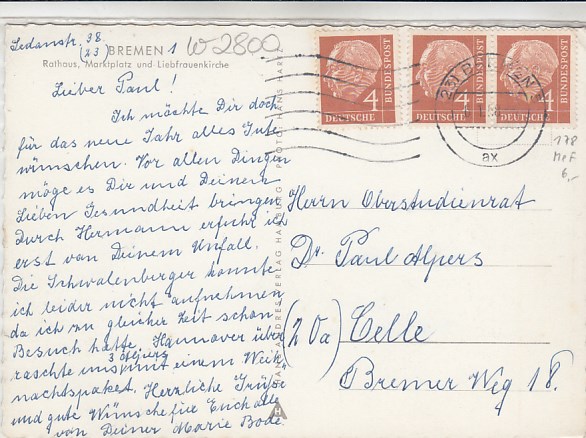 Sedanstr. 38.
(23) BREMEN 1
W-2800
Rathaus, Marktplatz und Liebfrauenkirche
Lieber Paul!
Ich möchte Dir doch
für das neue Jahr alles Gute
wünschen. Vor allen Dingen
möge es Dir und Deinen
Lieben Gesundheit bringen
Durch Hermann erfuhr ich
erst von Deinem Unfall.
Die Schwalenberger konnte
ich leider nicht aufnehmen
da ich zu gleicher Zeit schon
Besuch hatte. Hannover über
3 Alpers
raschte uns mit einem Weih
nachtspaket. Herzliche Grüße
und gute Wünsche für Euch alle
von Deiner Marie Bode.
4 DEUTSCHE BUNDESPOST
4 DEUTSCHE BUNDESPOST
4 DEUTSCHE BUNDESPOST
ax
178
MeF
6,-
Herrn Oberstudienrat
Dr. Paul Alpers
(20a) Celle
Bremer Weg 18.